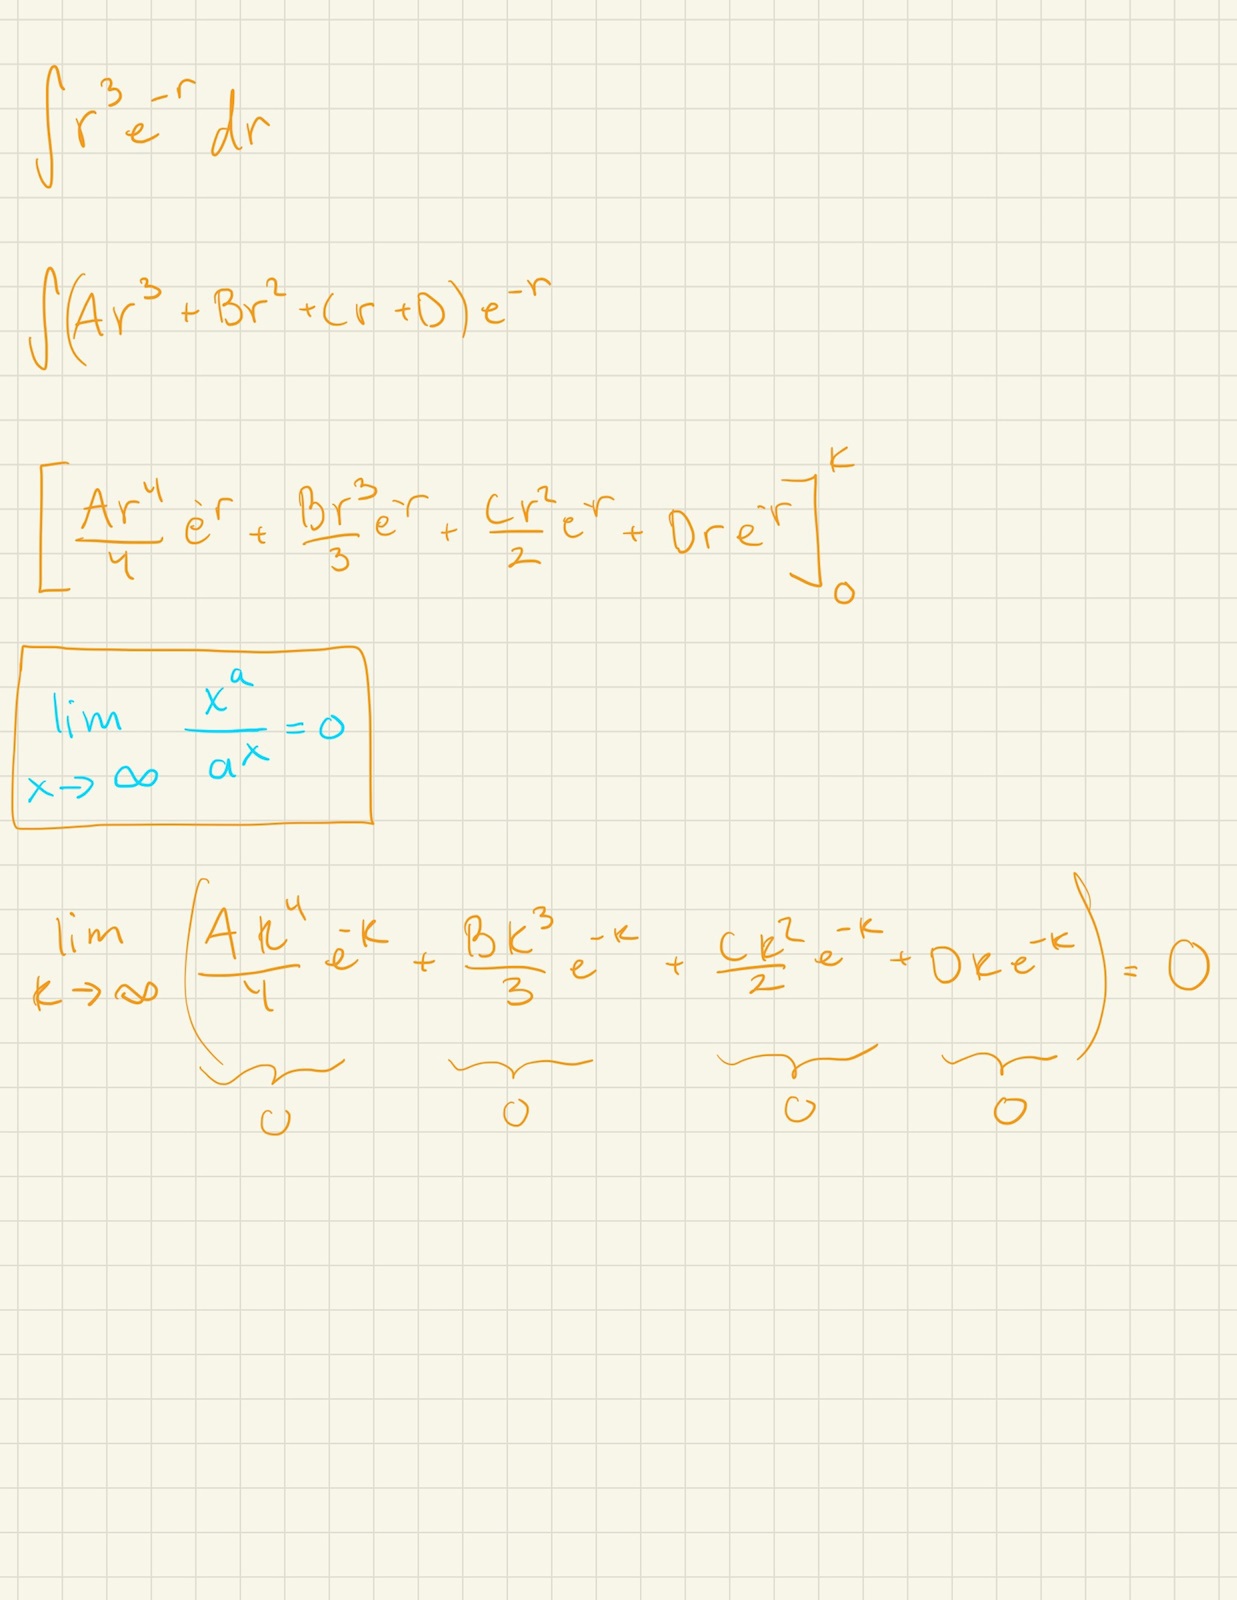 ∫ r³ e⁻ʳ dr
∫ (Ar³ + Br² + Cr + D) e⁻ʳ
[ Ar⁴/4 e⁻ʳ + Br³/3 e⁻ʳ + Cr²/2 e⁻ʳ + Dr e⁻ʳ ]₀ᴷ
lim x→∞ xᵃ/aˣ = 0
lim k→∞ ( Ak⁴/4 e⁻ᵏ + Bk³/3 e⁻ᵏ + Ck²/2 e⁻ᵏ + Dk e⁻ᵏ ) = 0
0 0 0 0